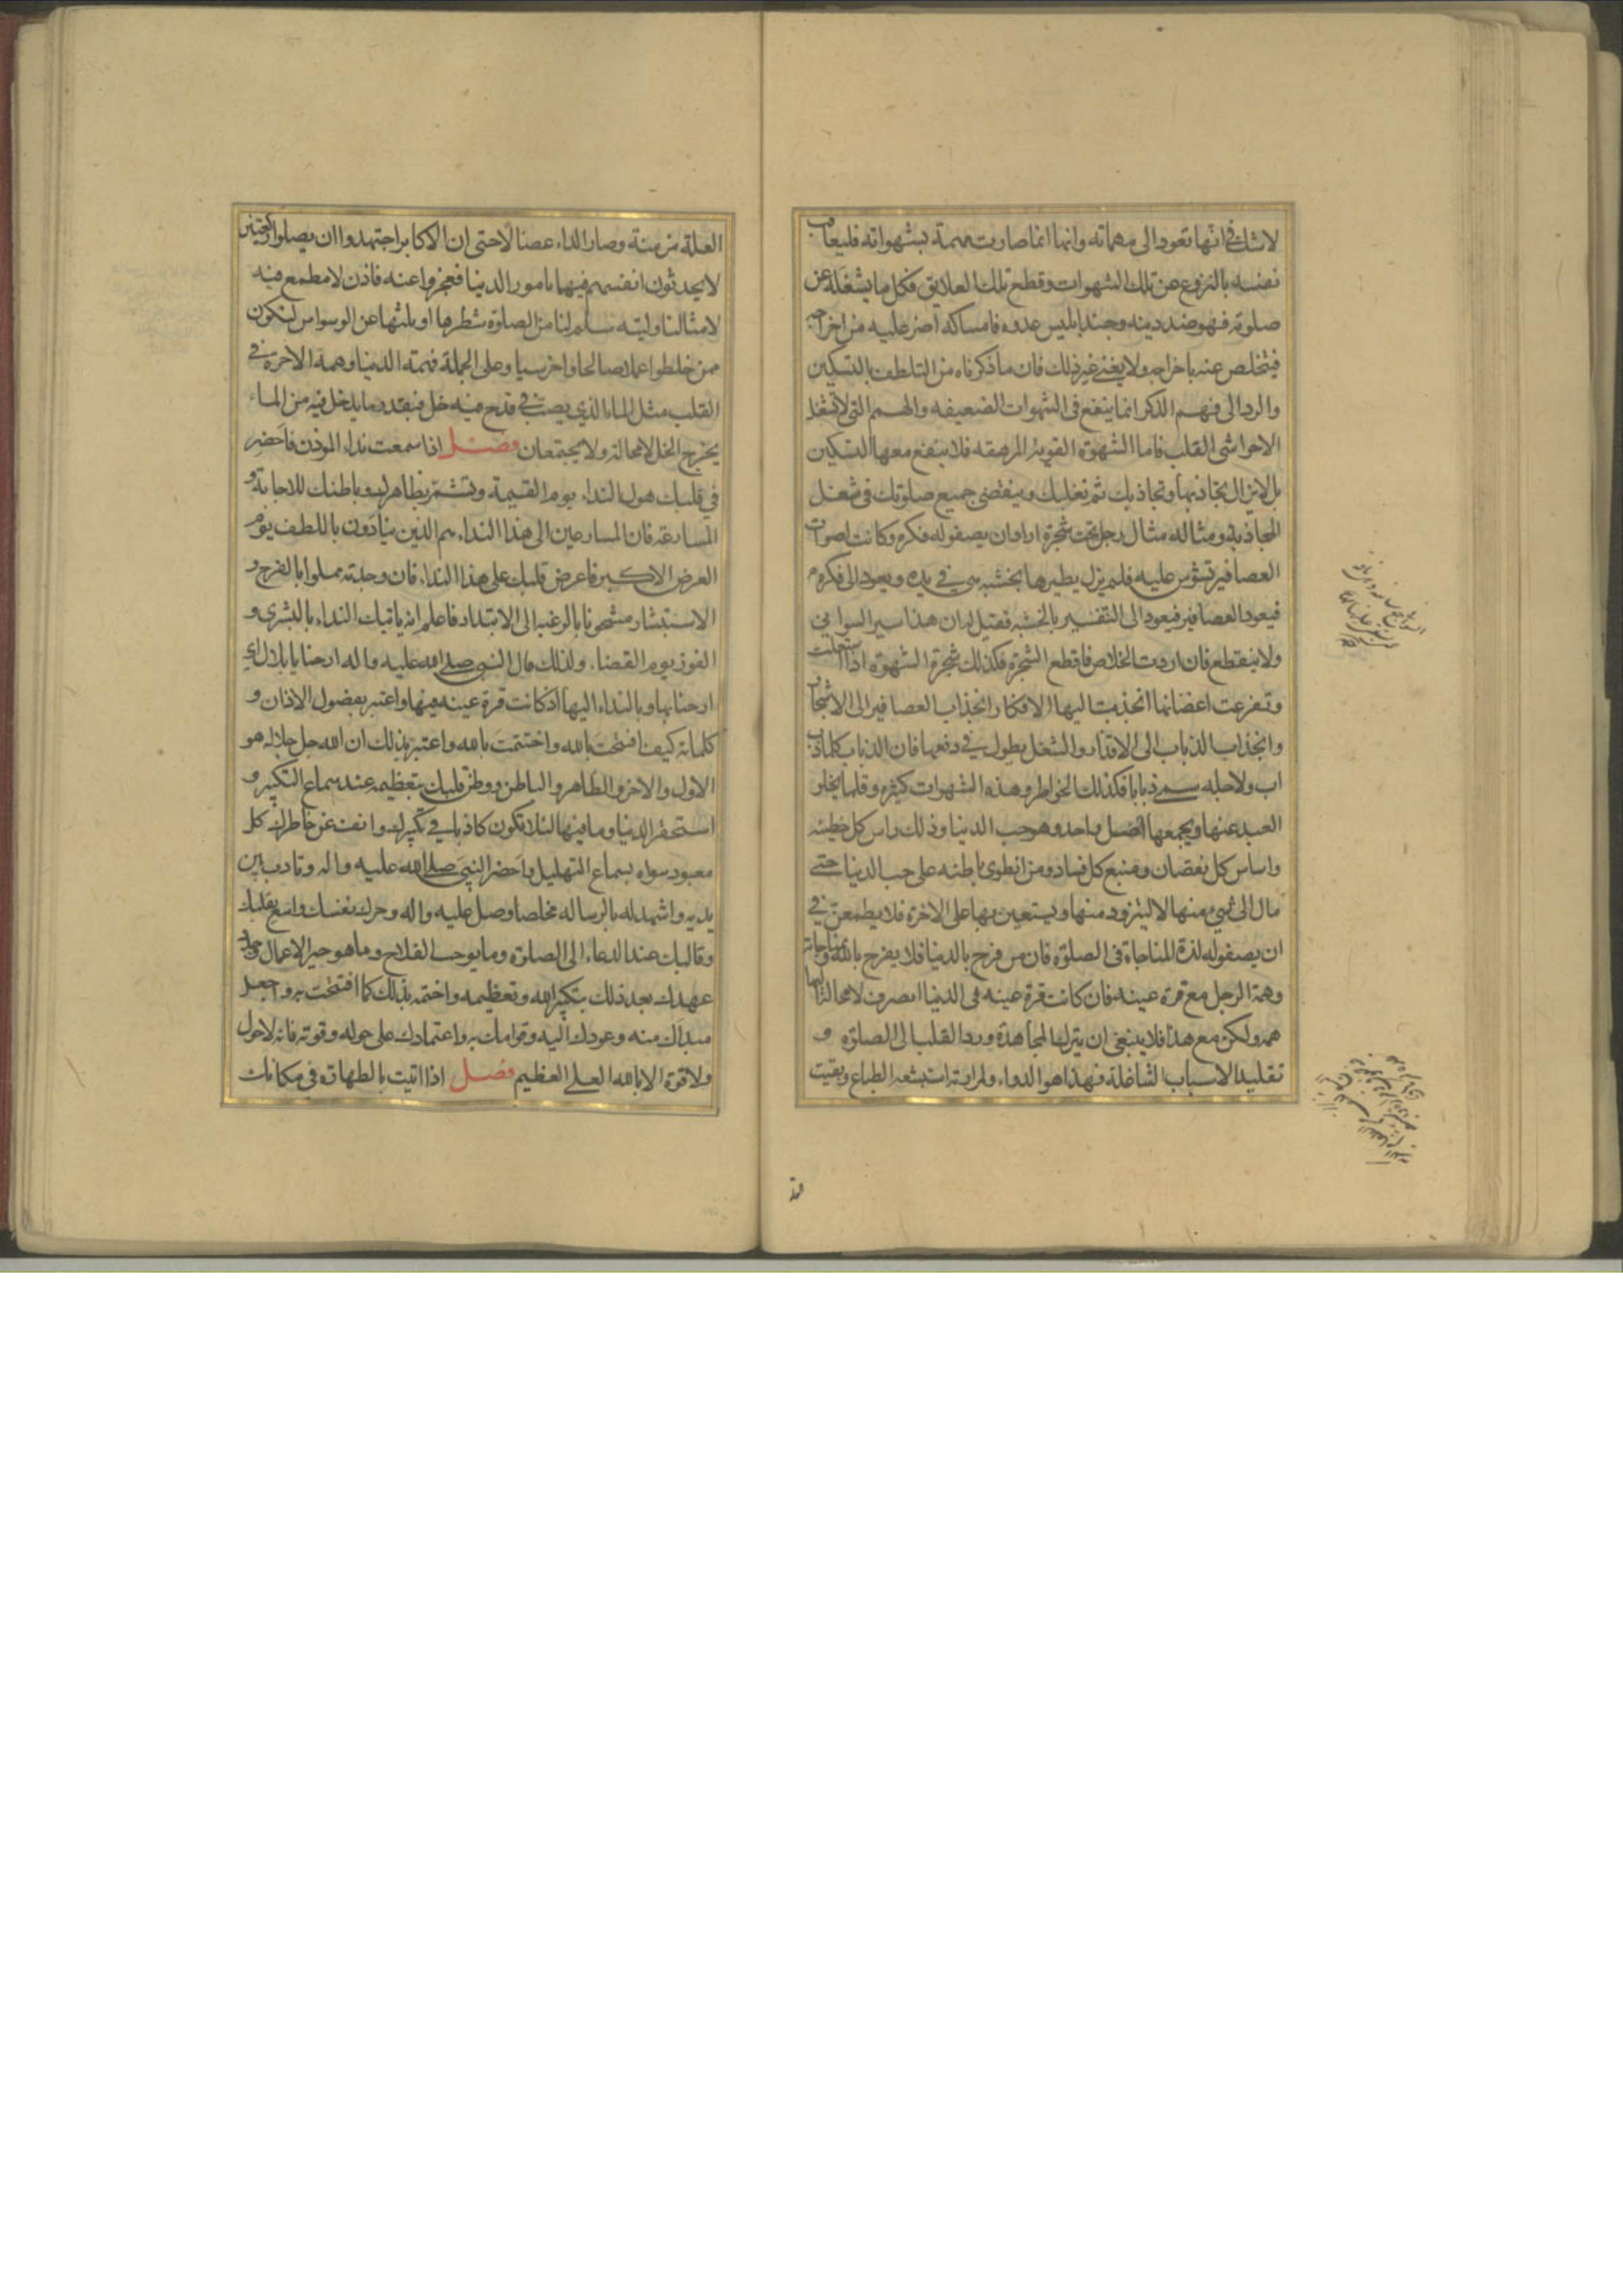 لاشك في انها تعود الى مهماته وانها انما صارت مهمة بشهواته فليعاقب
نفسه بالنزوع عن تلك الشهوات وقطع تلك العلايق فكل ما يشغله عن
صلوته فهو ضد دينه وجند ابليس عدوه فامساكه اضر عليه من اخراجه
فيتخلص عنه باخراجه ولا يغني غير ذلك فان ماذكرناه من التلطف بالتسكين
والرد الى فهم الذكر انما ينفع في الشهوات الضعيفه والهمم التي لا تشغل
الا حواشي القلب فاما الشهوة القوية المرهقه فلا ينفع معها التسكين
بل لا يزال تجاذبها وتجاذبك ثم تغلبك وينقضي جميع صلوتك في شغل
المجاذبة ومثاله مثال رجل تحت شجرة اراد ان يصفو له فكره وكانت اصوات
العصافير تشوش عليه فلم يزل يطيرها بخشبه هي في يده ويعود الى فكره
فيعود العصافير فيعود الى التنفير بالخشبه فقيل له ان هذا سير السواني
ولا ينقطع فان اردت الخلاص فاقطع الشجرة فكذلك شجرة الشهوة اذا استعلت
وتفرعت اغصانها انجذبت اليها الافكار انجذاب العصافير الى الاشجار
وانجذاب الذباب الى الاقذار والشغل يطول في دفعها فان الذباب كلما ذب
اب ولاجله سمي ذبابا فكذلك الخواطر وهذه الشهوات كثيره وقلما يخلو
العبد عنها ويجمعها اصل واحد وهو حب الدنيا وذلك راس كل خطيئه
واساس كل نقصان ومنبع كل فساد ومن انطوى باطنه على حب الدنيا حتى
مال الى شيء منها لا ليتزود منها ويستعين بها على الاخرة فلا يطمعن في
ان يصفو له لذة المناجاة في الصلوة فان من فرح بالدنيا فلا يفرح بالله وبمناجاته
وهمة الرجل مع قرة عينه فان كانت قرة عينه في الدنيا انصرف لامحالة اليها
همه ولكن مع هذا فلا ينبغي ان يترك المجاهدة ورد القلب الى الصلوة و
تقليد الاسباب الشاغلة فهذا هو الدواء ولمرارته استبشعه الطباع وبقيت
العلة مزمنة وصار الداء عضالا حتى ان الاكابر اجتهدوا ان يصلوا ركعتين
لا يحدثون انفسهم فيها بامور الدنيا فعجزوا عنه فاذن لا مطمع فيه
لامثالنا وليته سلم لنا من الصلوة شطرها او ثلثها عن الوسواس لنكون
ممن خلطوا عملا صالحا واخر سيا وعلى الجملة فهمة الدنيا وهمة الاخرة في
القلب مثل الماء الذي يصب في قدح فيه خل فبقدر ما يدخل فيه من الماء
يخرج الخل لامحالة ولا يجتمعان فصل اذا سمعت نداء الموذن فاحضر
في قلبك هول النداء يوم القيمة وتشمر بظاهرك وباطنك للاجابة و
المسارعة فان المسارعين الى هذا النداء هم الذين ينادون باللطف يوم
العرض الاكبر فاعرض قلبك على هذا النداء فان وجدته مملوا بالفرح و
الاستبشار مشحونا بالرغبه الى الابتدار فاعلم انه ياتيك النداء بالبشرى و
الفوز يوم القضاء ولذلك قال النبي صلى الله عليه واله ارحنا يا بلال اي
ارحنا بها وبالنداء اليها اذ كانت قرة عينه فيها واعتبر بفصول الاذان و
كلماته كيف افتتحت بالله واختتمت بالله واعتبر بذلك ان الله جل جلاله هو
الاول والاخر والظاهر والباطن ووطن قلبك بتعظيمه عند سماع التكبير و
استحقر الدنيا وما فيها لئلا تكون كاذبا في تكبيرك وانف عن خاطرك كل
معبود سواه بسماع التهليل واحضر النبي صلى الله عليه واله وتادب بين
يديه واشهد له بالرساله مخلصا وصل عليه واله وحرك نفسك واسع بقلبك
وقالبك عند الدعاء الى الصلوة وما يوجب الفلاح وما هو خير الاعمال وجدد
عهدك بعد ذلك بتكبير الله وتعظيمه واختمه بذلك كما افتتحت به واجعل
مبداك منه وعودك اليه وقوامك به واعتمادك على حوله وقوته فانه لا حول
ولا قوة الا بالله العلي العظيم فصل اذا اتيت بالطهارة في مكانك